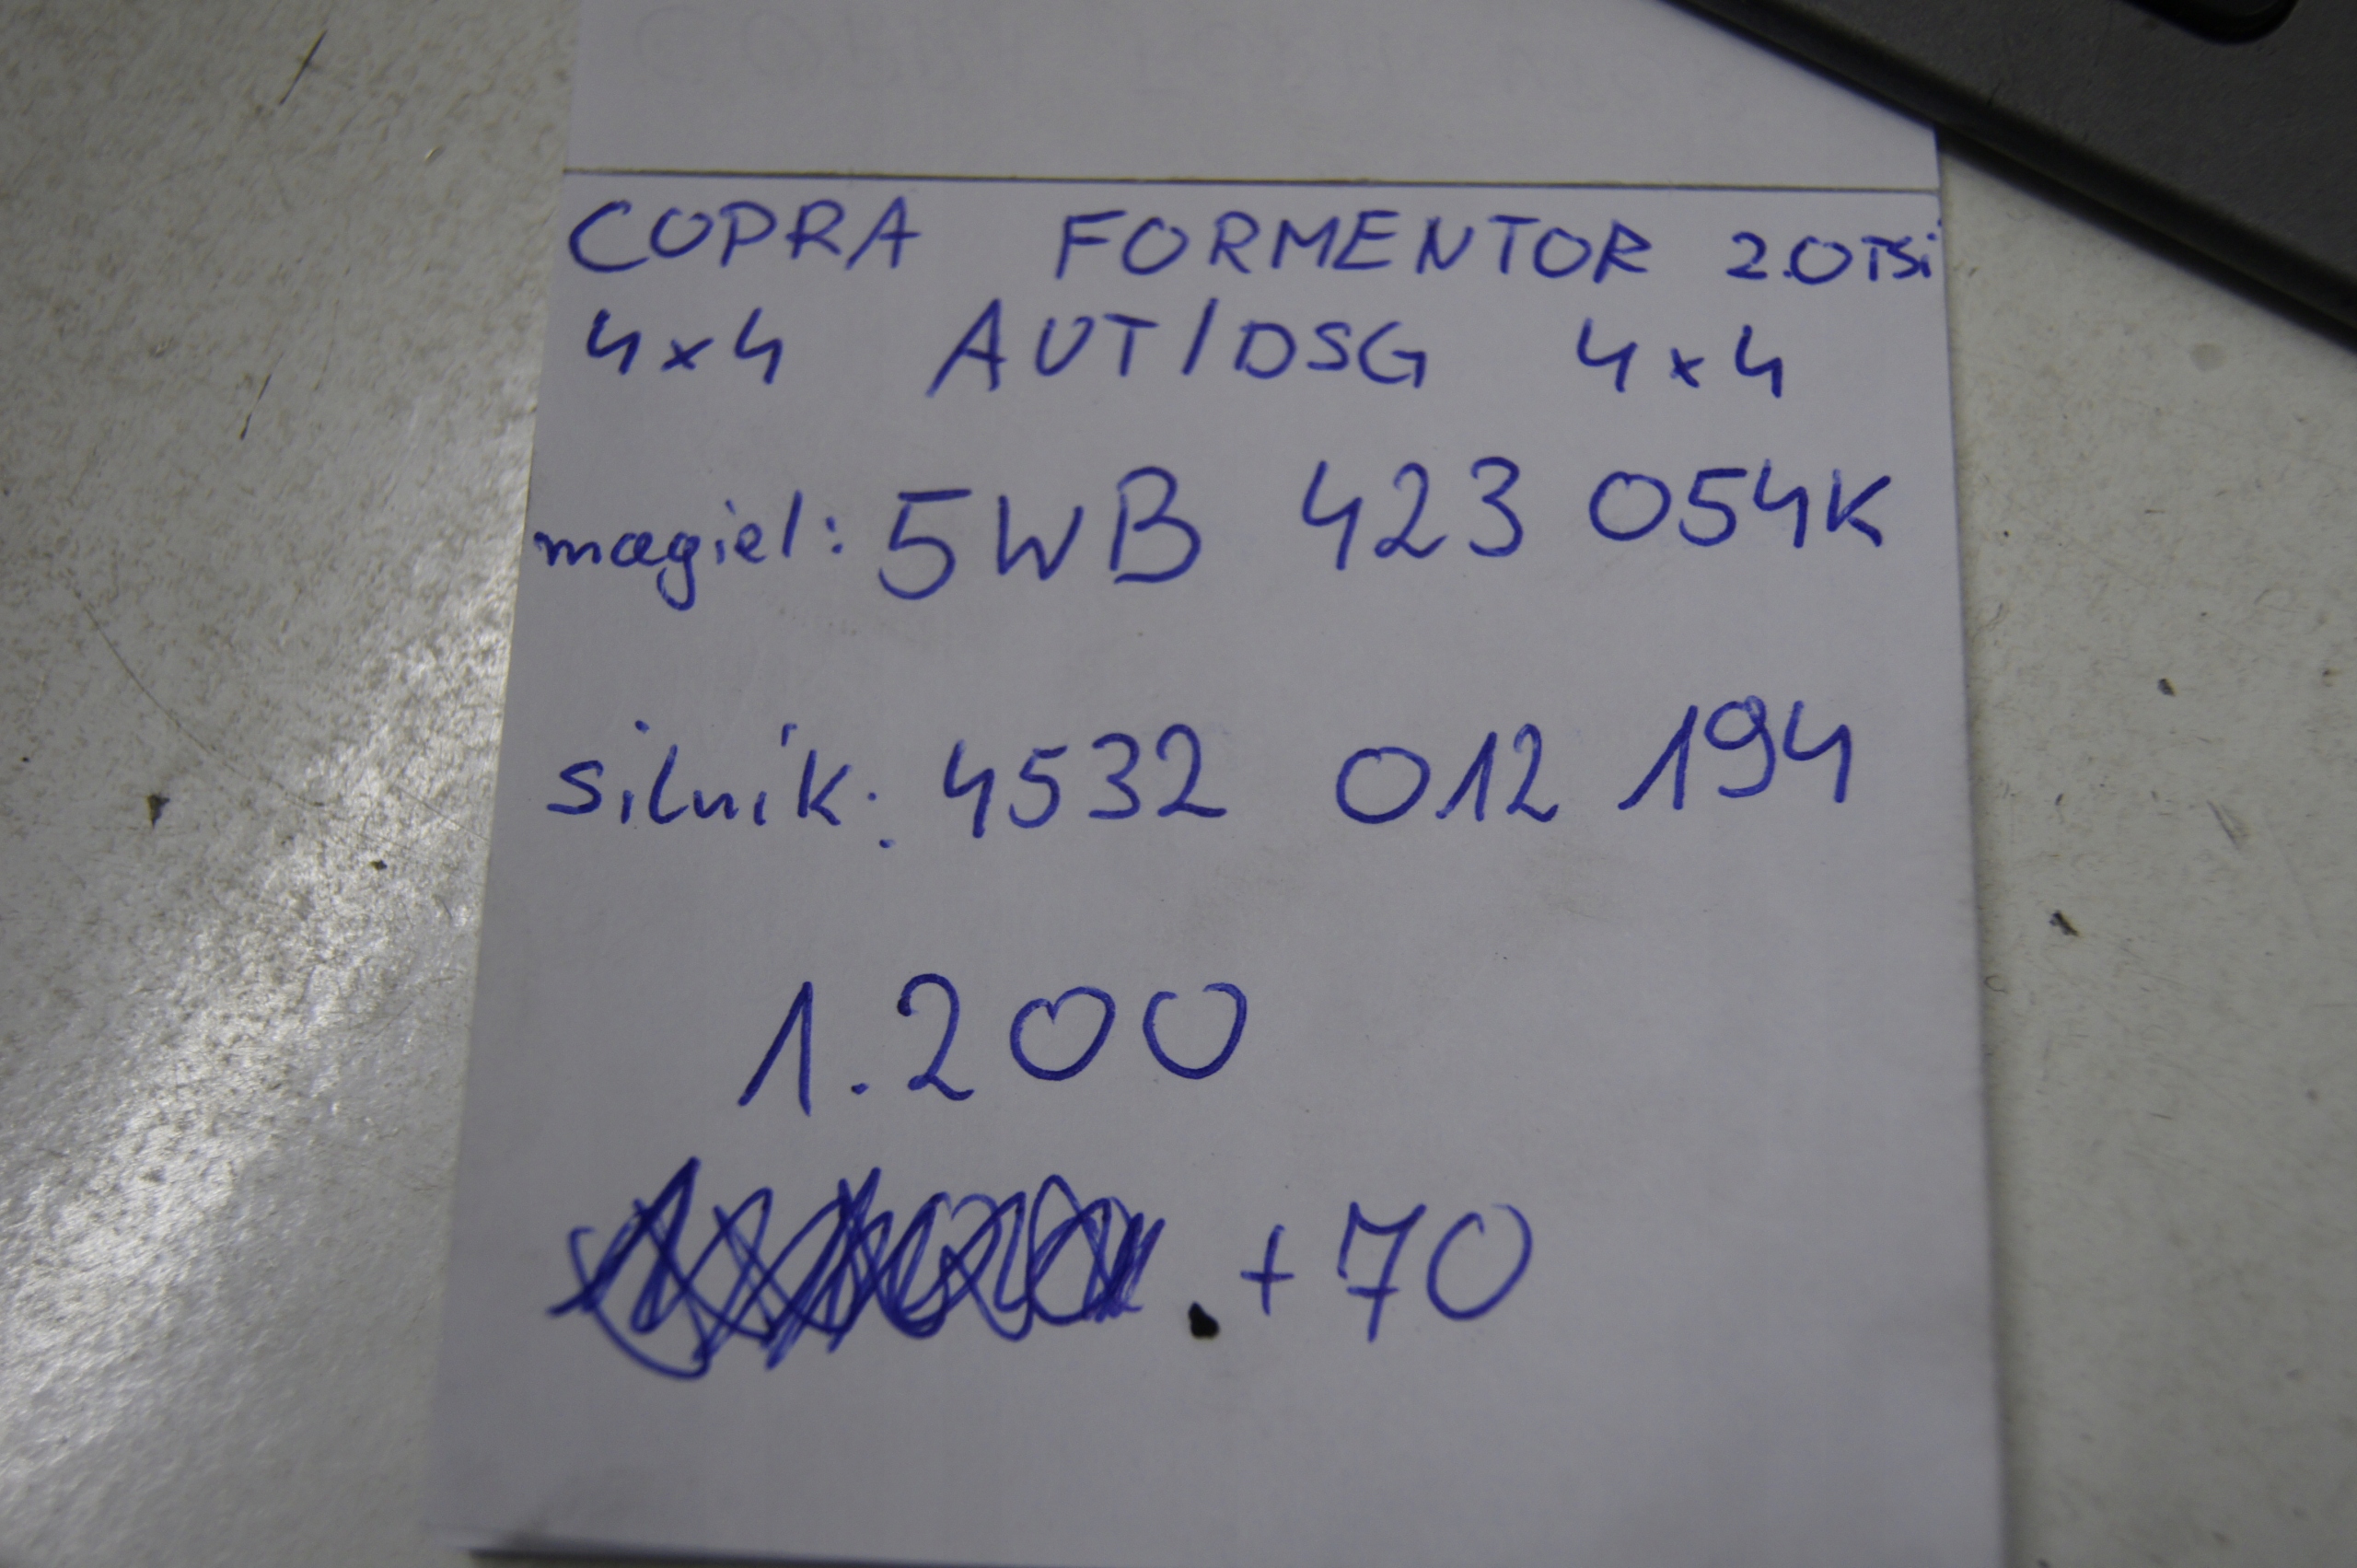 COPRA FORMENTOR 2.0TSi
4x4 AUT/DSG 4x4
magiel: 5WB 423 054K
silnik: 4532 012 194
1.200
+70